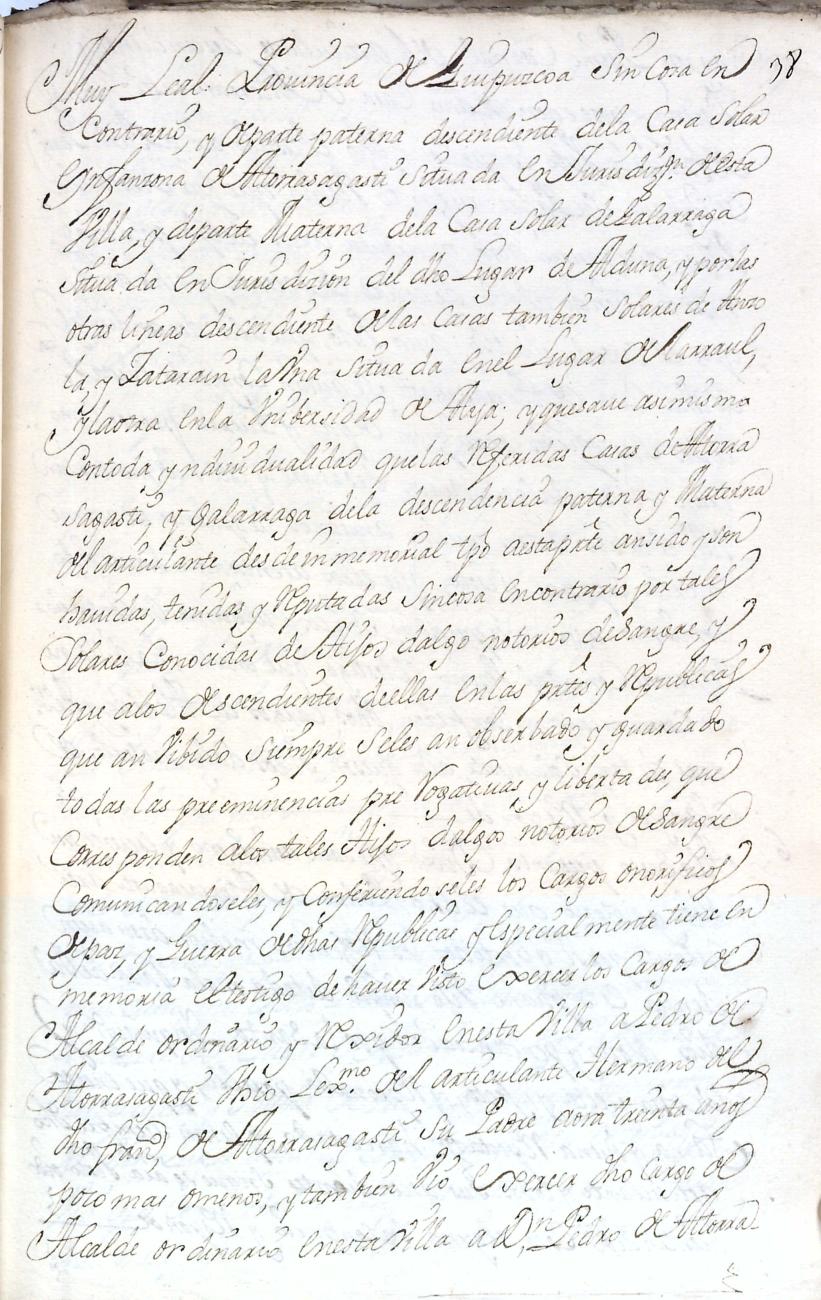 Muy Leal Provincia de Guipuzcoa sin cosa en 38
Contrario, y departe paterna descendiente dela Casa Solar
Ynfanzona de Atorrasagasti Situada en Jurisdizn. de esta
Villa, y departe Materna dela Casa Solar de Galarraga
Situada en Jurisdizion del dho Lugar de Alduna, y por las
otras lineas descendiente de las Casas tambien Solares de
la, y Zatarain la Una Situada en el Lugar de Larraul,
y la otra en la Vnibersidad de Aya; y que save asimismo
Contoda yndiuidualidad que las Referidas Casas de Atorra
sagasti, y Galarraga dela descendencia paterna, y Materna
del articulante desde inmemorial tpo aesta prte ansido y son
hauidas, tenidas y Reputadas Sin cosa en contrario por tales
Solares Conocidas de Hijos dalgo notorios de Sangre, y
que alos descendientes de ellas en las prtes y Republicas
que an Vibido Siempre Seles an obserbado y guardado
todas las preeminencias pre Rogatiuas, y libertades, que
Corresponden alos tales Hijos dalgos notorios de Sangre
Comunicandoseles, y Confiriendoseles los Cargos onorificos
de paz, y Guerra de dhas Republicas y Especialmente tiene en
memoria el testigo de hauer Visto Exercer los Cargos de
Alcalde ordinario y Rexidor en esta Villa a Pedro de
Atorrasagasti Hijo Lexmo. del articulante Hermano del
dho Franco, de Atorrasagasti Su Padre aora treinta años
poco mas omenos, y tambien Vio Exercer dho Cargo de
Alcalde ordinario en esta Villa a Dn. Pedro de Atorra